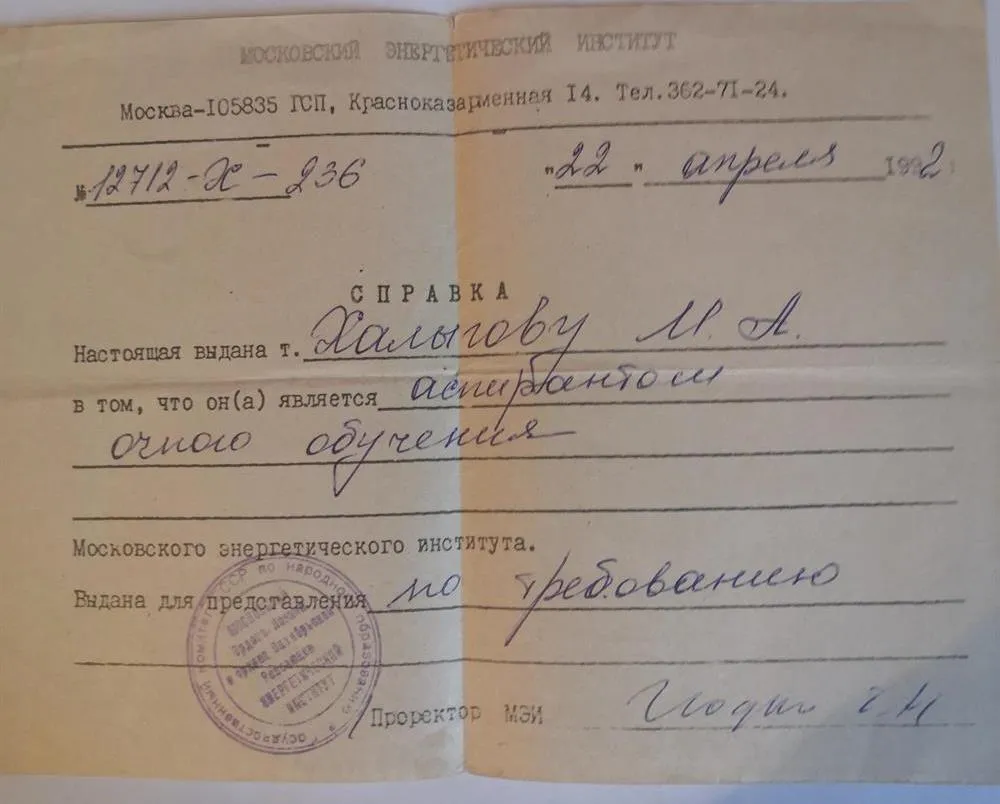 МОСКОВСКИЙ ЭНЕРГЕТИЧЕСКИЙ ИНСТИТУТ
Москва-I05835 ГСП, Красноказарменная I4. Тел.362-7I-24.
№ 12712-Х-236 "22" апреля 1992
СПРАВКА
Настоящая выдана т. Халыгову М. А.
в том, что он(а) является аспирантом
очного обучения
Московского энергетического института.
Выдана для представления по требованию
Проректор МЭИ
Государственный комитет СССР по народному образованию
МОСКОВСКИЙ
Ордена Ленина
и ордена Октябрьской
Революции
ЭНЕРГЕТИЧЕСКИЙ
ИНСТИТУТ